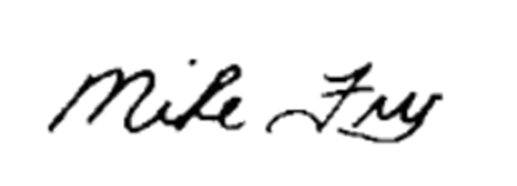 Mike Fry